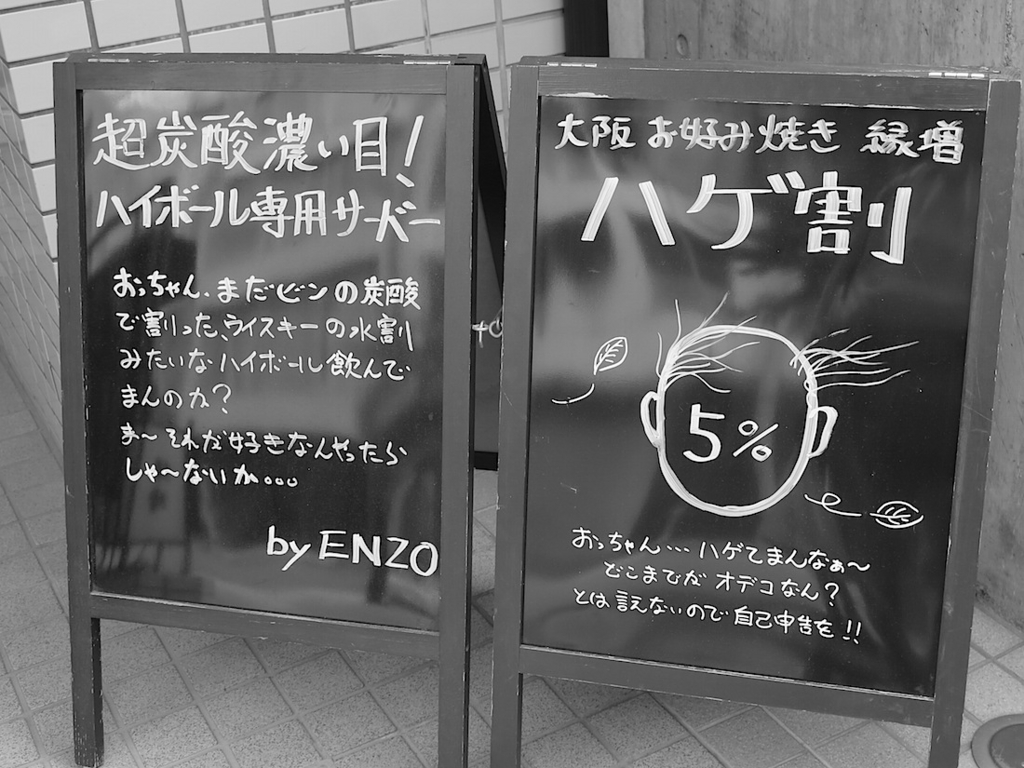 超炭酸濃い目!
ハイボール専用サーバー
おっちゃん、まだビンの炭酸
で割った、ウイスキーの水割
みたいなハイボール飲んで
まんのカ?
ま〜それが好きなんやったら
しゃ〜ないか。。。
by ENZO
大阪 お好み焼き 縁増
ハゲ割
5%
おっちゃん…ハゲてまんなぁ〜
どこまでが オデコなん?
とは言えないので 自己申告を!!